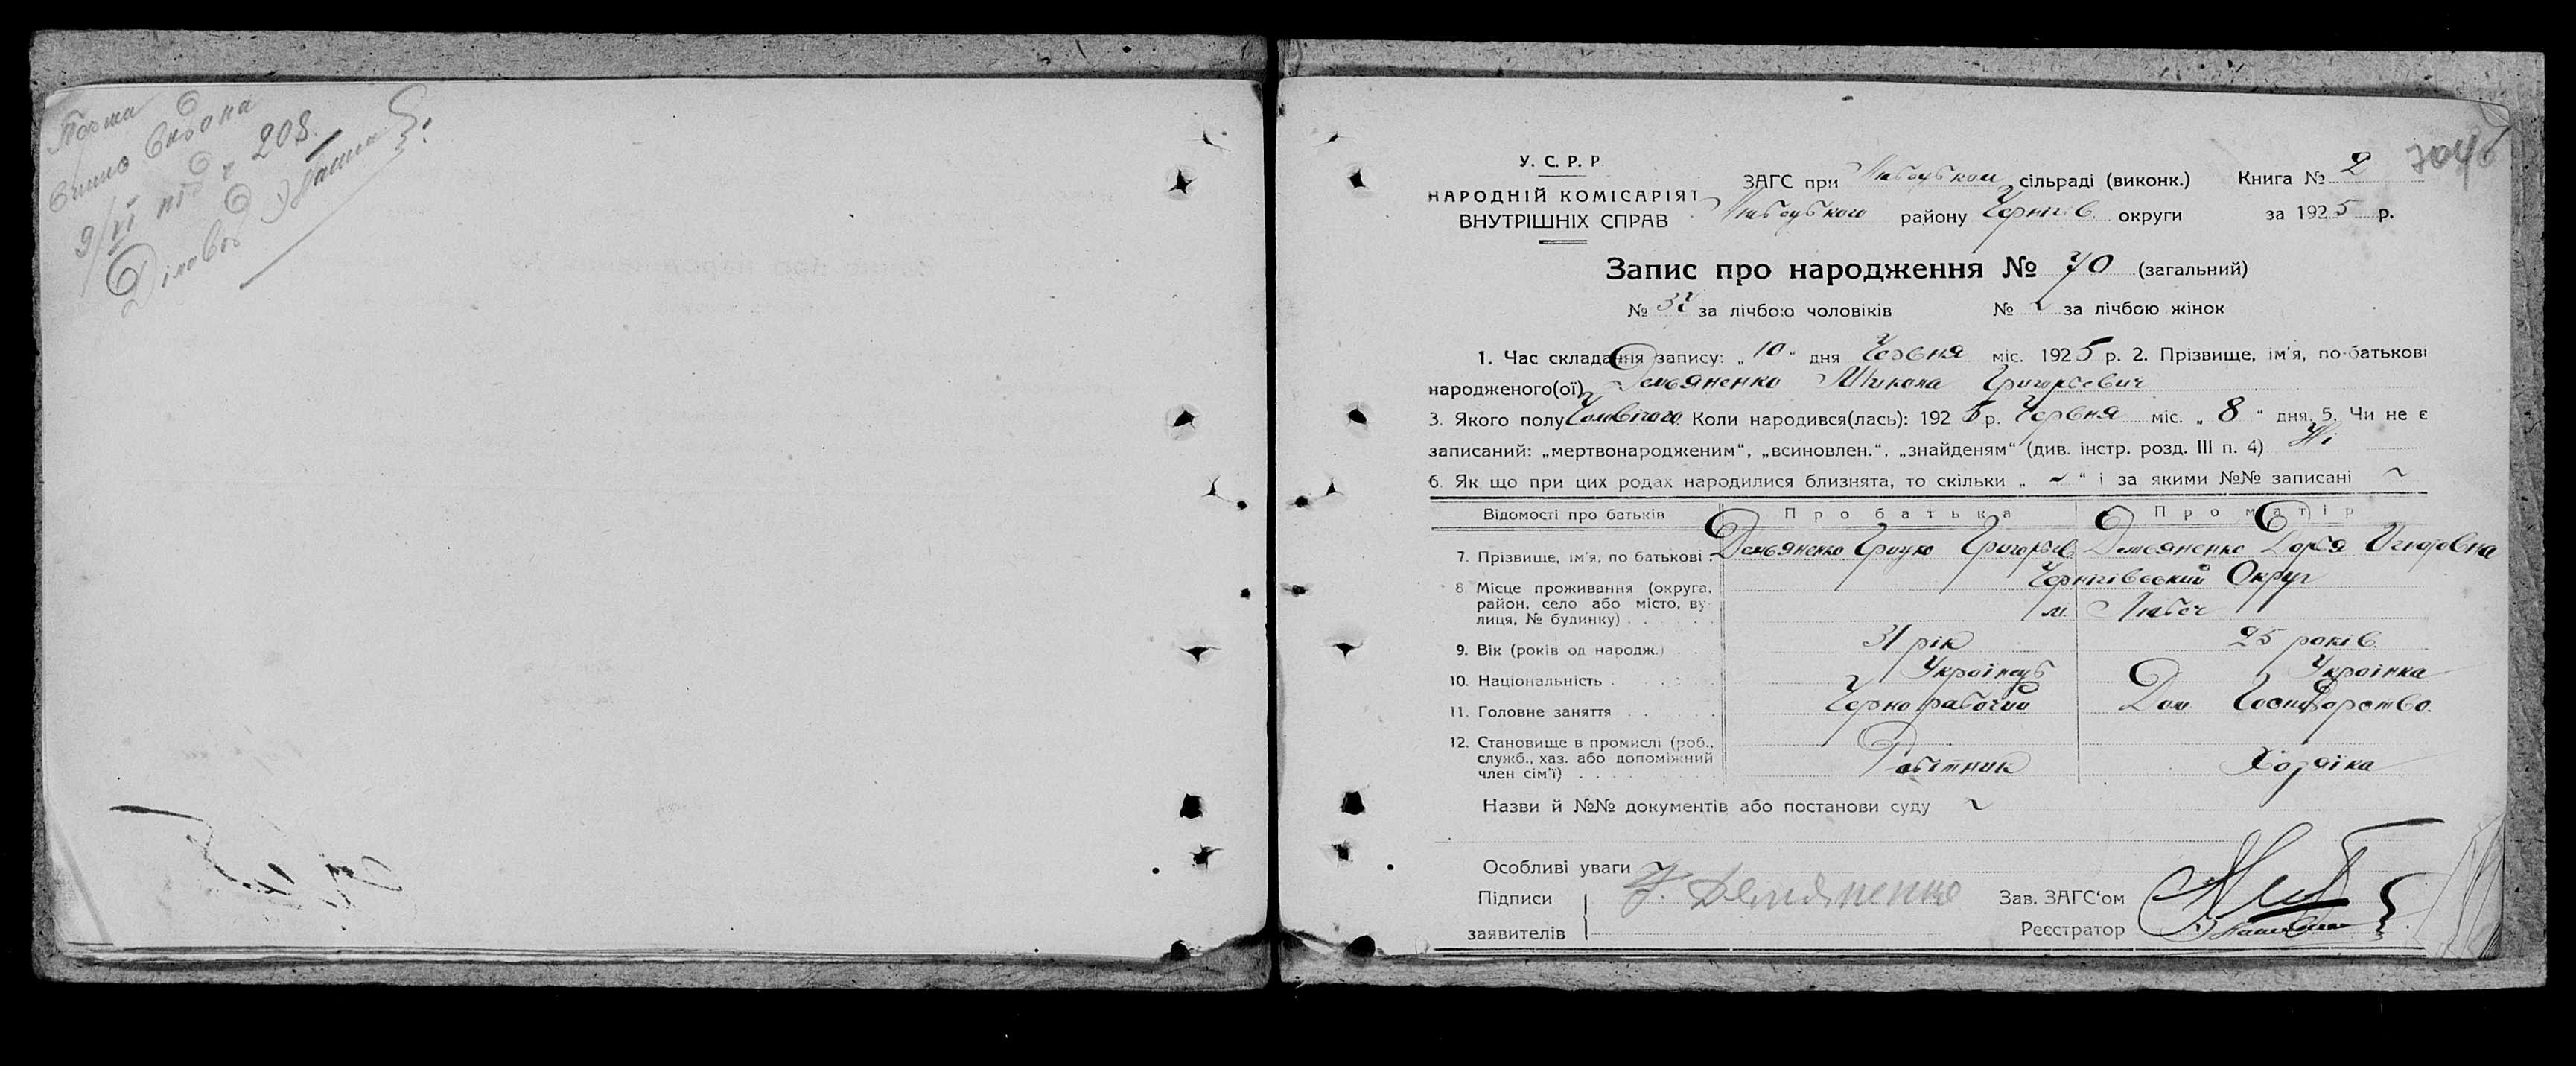 9/VI під ч 208.
Діловод
У. С. Р. Р.
НАРОДНІЙ КОМІСАРІЯТ
ВНУТРІШНІХ СПРАВ
ЗАГС при Любецьком сільраді (виконк.) Книга № 2
Любецького району Чернігів. округи за 1925 р.
Запис про народження № 70 (загальний)
№ за лічбою чоловіків № за лічбою жінок
1. Час складання запису: „10“ дня Червня міс. 1925 р. 2. Прізвище, ім'я, по-батькові
народженого(ої) Демьяненко Микола Григорьевич
3. Якого полу Чоловічого Коли народився(лась): 1925 р. Червня міс. „8“ дня. 5. Чи не є
записаний: „мертвонародженим“, „всиновлен.“, „знайденям“ (див. інстр. розд. III п. 4) Ні
6. Як що при цих родах народилися близнята, то скільки „ ~ “ і за якими №№ записані ~
Відомості про батьків Про батька Про матір
7. Прізвище, ім'я, по батькові . Демьяненко Грицко Григорьев Демьяненко Дарья
8. Місце проживання (округа, Чернігівський Округ
район, село або місто, ву-
лиця, № будинку) . . м. Любеч
9. Вік (років од народж.) . . 31 рік 25 років
10. Національність . Українець Українка
11. Головне заняття . . Чернорабочий Дом. Господарство.
12. Становище в промислі (роб.,
служб., хаз. або допоміжний
член сім'ї) . . . Робітник Хозяіка
Назви й №№ документів або постанови суду ~
Особливі уваги ~
Підписи Демяненко Зав. ЗАГС'ом
заявителів Реєстратор